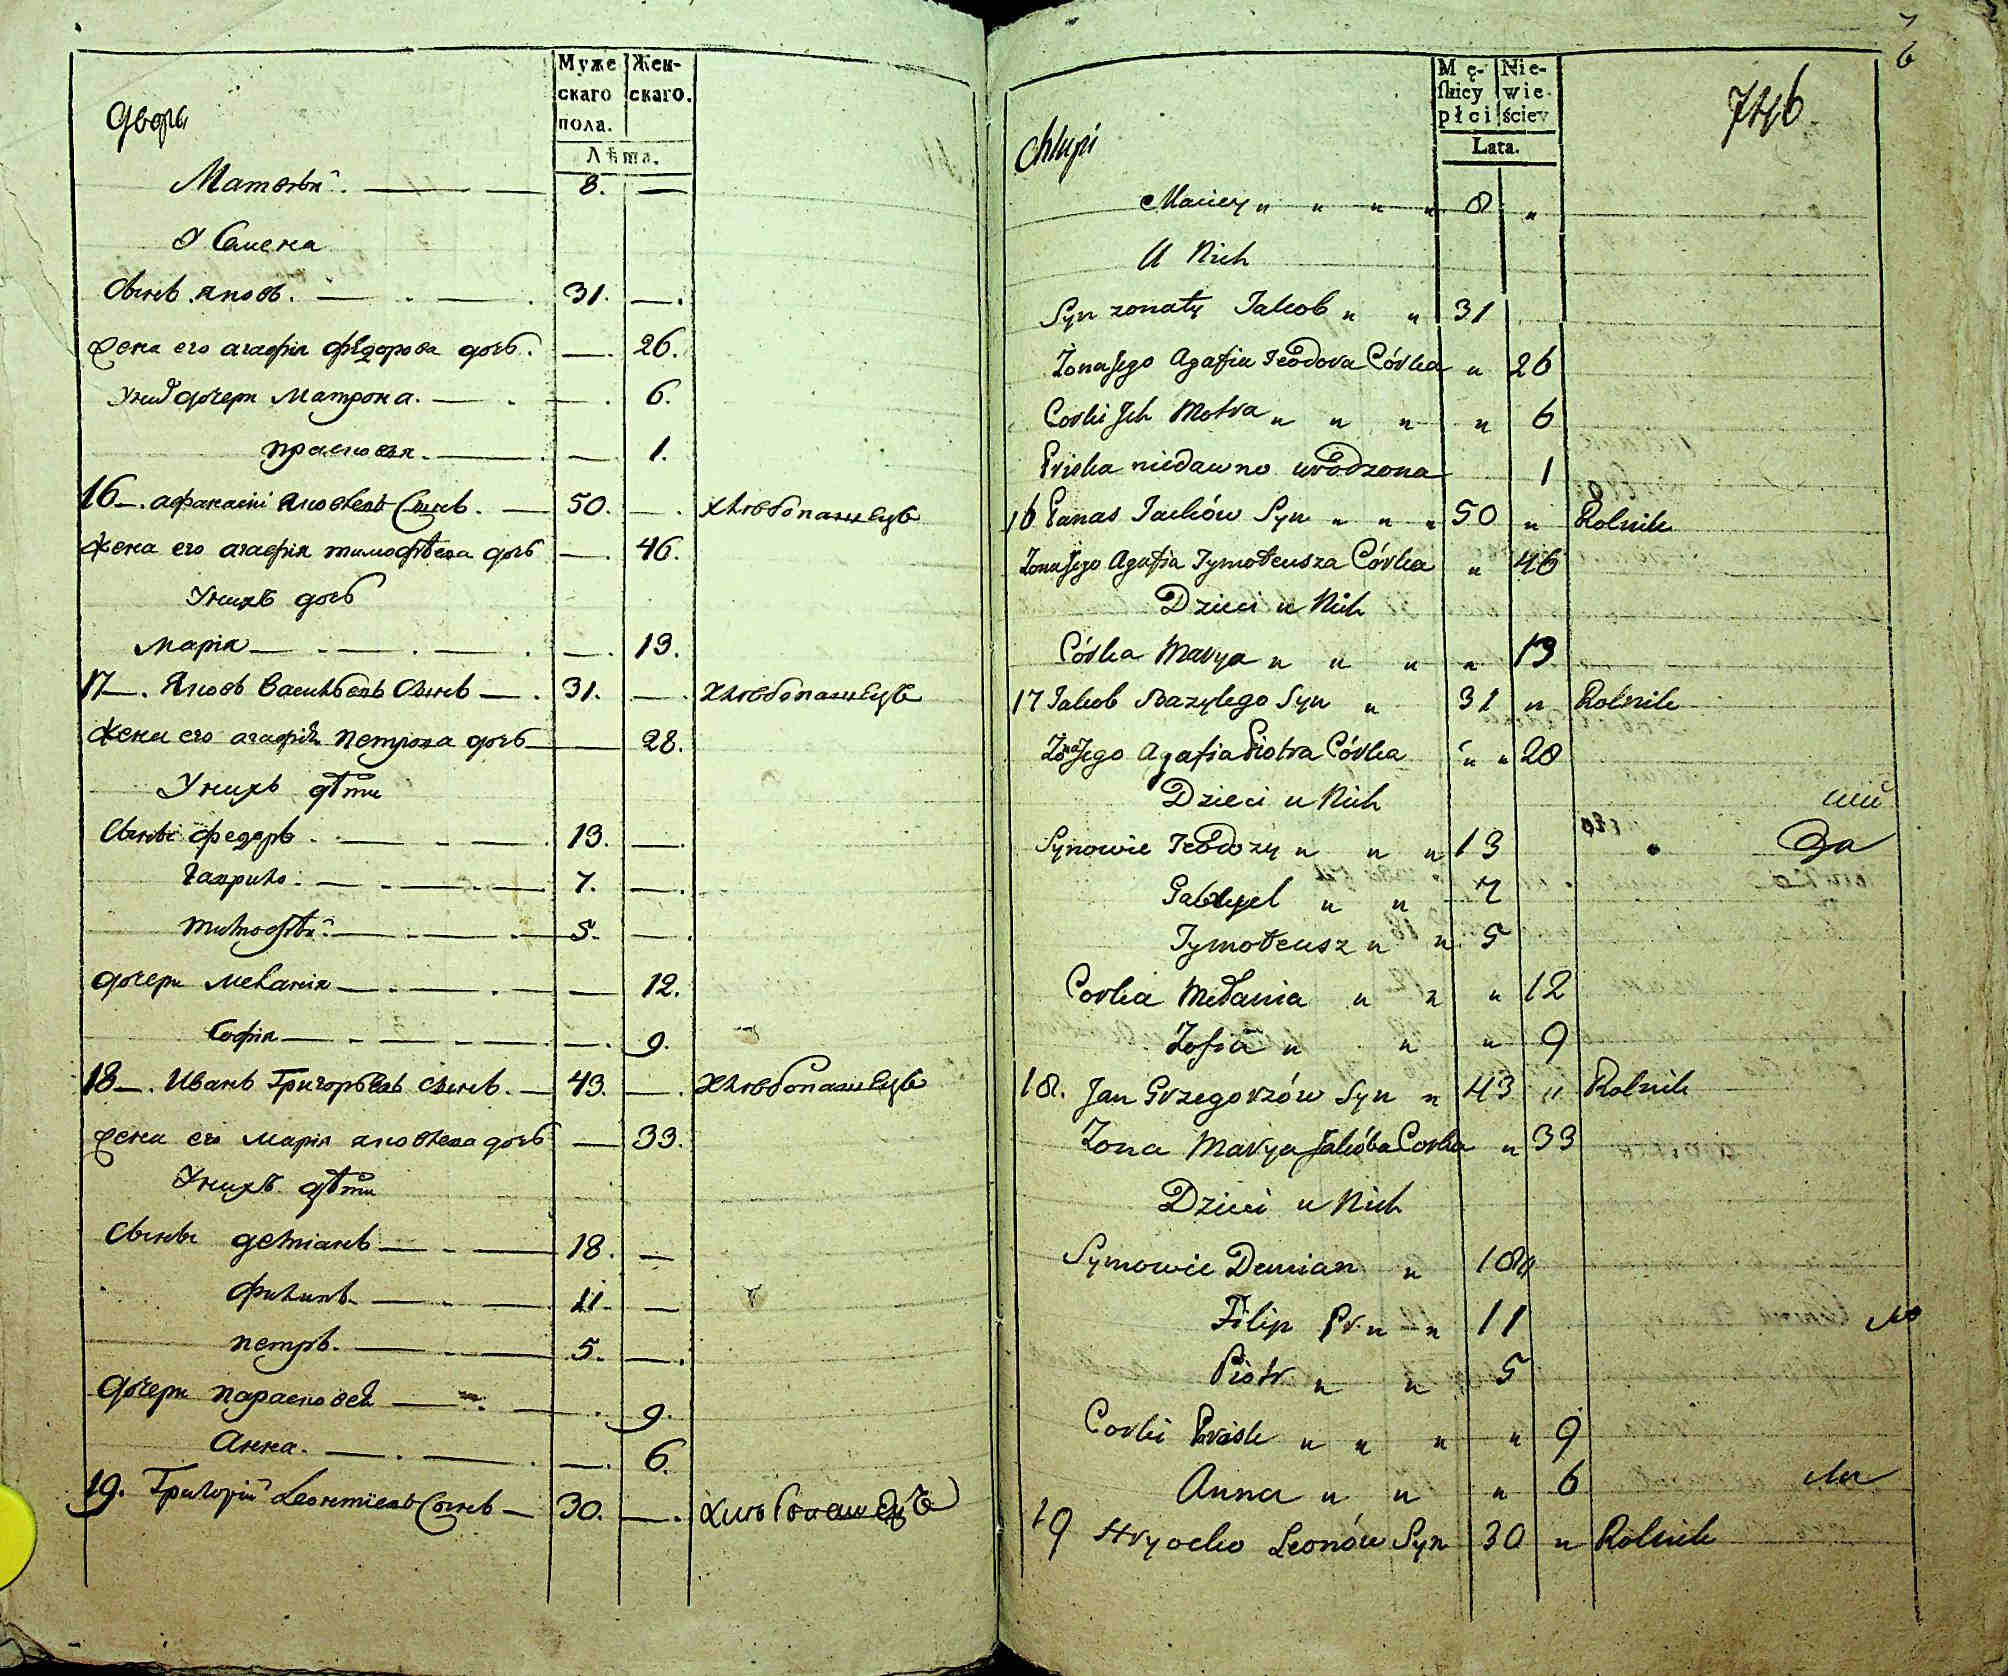 Дворы
Муже
скаго
пола.
Жен-
скаго.
Лѣта.
Матвѣй. 8. —
У Самена
Сынъ яковъ. 31. —
Жена его агафія фѣдорова дочь. — 26.
У нихъ дочери Матрона. — 6.
прасковья. — 1.
16. афанасіи яковлевъ Сынъ. 50. — хлѣбопашецъ
жена его агафія тимофѣева дочь — 46.
У нихъ дочь
марія — 13.
17. Яковъ Васильевъ Сынъ 31. — хлѣбопашецъ
жена его агафія петрова дочь — 28.
У нихъ дѣти
Сыны федоръ 13. —
Гаврило 7. —
тимофѣй 5. —
дочери меланія — 12.
Софія — 9.
18. Иванъ Григорьевъ сынъ. 43. — хлѣбопашецъ
жена его марія яковлева дочь — 33.
У нихъ дѣти
Сыны демианъ 18. —
филипъ 11. —
петръ. 5. —
дочери парасковея — 9.
Анна. — 6.
19. Григорій Леонтіевъ Сынъ 30. — хлѣбопашецъ
7
6
Chłupi
Mę-
skiey
płci
Nie-
wie-
ściey
Lata.
Maciey " " " " 8 "
U Nich
Syn zonaty Jakob " " 31
Żona Jego Agafia Teodora Córka " 26
Corki Ich Motra " " " " 6
Priska niedawno urodzona 1
16 Panas Jacków Syn " " " 50 " Rolnik
Żona Jego Agafia Tymoteusza Córka " 46
Dzieci u Nich
Córka Marya " " " " 13
17 Jakob Bazylego Syn " 31 " Rolnik
Żona Jego Agafia Piotra Córka " " 28
Dzieci u Nich
Synowie Teodozy " " " 13
Gabryel " " 7
Tymoteusz " " 5
Corka Melania " " " 12
Zofia " " " 9
18. Jan Grzegorzów Syn " 43 " Rolnik
Żona Marya Jakóba Corka " 33
Dzieci u Nich
Synowie Demian " 18 "
Filip Pr. " " 11
Piotr " " 5
Corki Prisk " " " " 9
Anna " " " 6
19 Hryćko Leonów Syn 30 " Rolnik